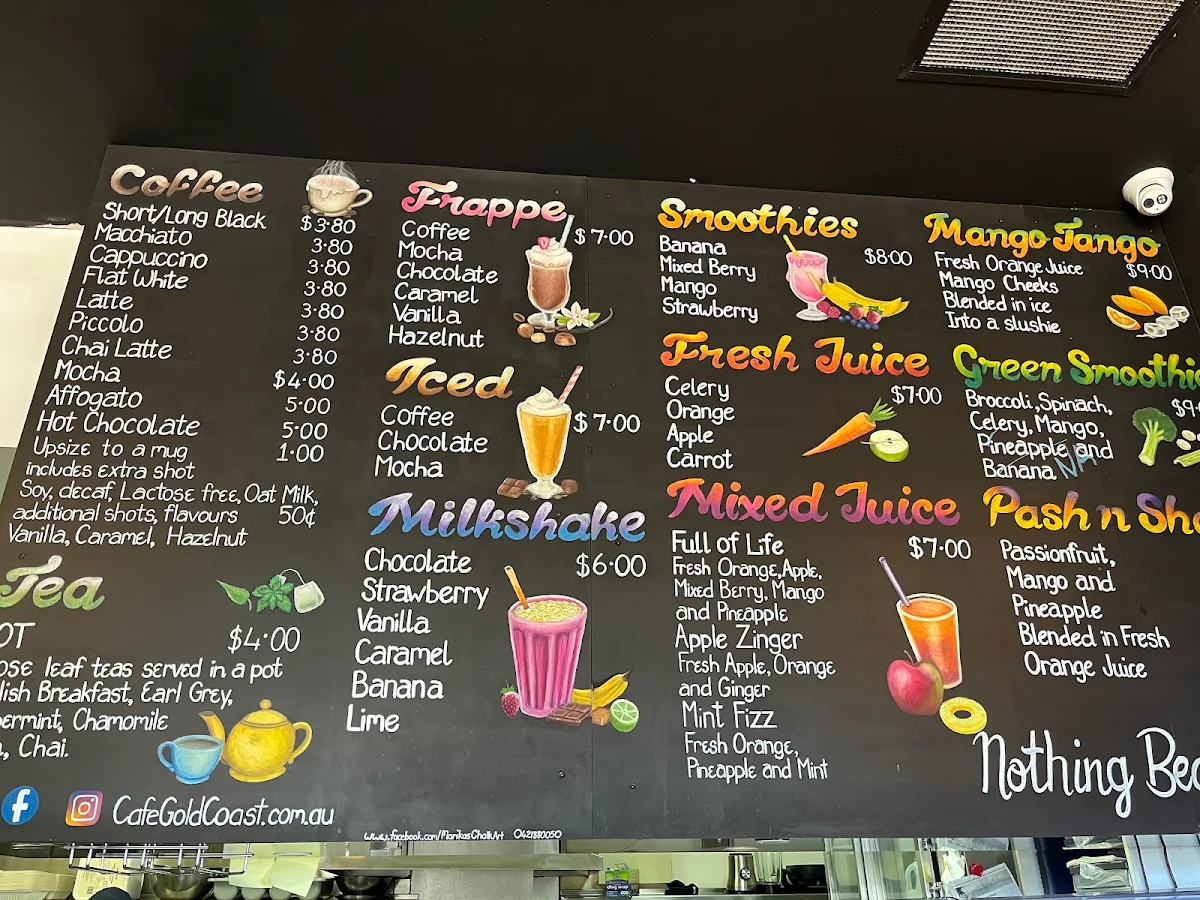 Coffee
Short/Long Black $3.80
Macchiato 3.80
Cappuccino 3.80
Flat White 3.80
Latte 3.80
Piccolo 3.80
Chai Latte 3.80
Mocha $4.00
Affogato 5.00
Hot Chocolate 5.00
Upsize to a mug 1.00
includes extra shot
Soy, decaf, Lactose free, Oat Milk,
additional shots, flavours 50¢
Vanilla, Caramel, Hazelnut
Tea
OT $4.00
ose leaf teas served in a pot
lish Breakfast, Earl Grey,
ermint, Chamomile
, Chai.
CafeGoldCoast.com.au
Frappe
Coffee $7.00
Mocha
Chocolate
Caramel
Vanilla
Hazelnut
Iced
Coffee $7.00
Chocolate
Mocha
Milkshake
Chocolate $6.00
Strawberry
Vanilla
Caramel
Banana
Lime
www.facebook.com/MarikasChalkArt 0421880050
Smoothies
Banana $8.00
Mixed Berry
Mango
Strawberry
Fresh Juice
Celery $7.00
Orange
Apple
Carrot
Mixed Juice
Full of Life $7.00
Fresh Orange, Apple,
Mixed Berry, Mango
and Pineapple
Apple Zinger
Fresh Apple, Orange
and Ginger
Mint Fizz
Fresh Orange,
Pineapple and Mint
Mango Tango
Fresh Orange Juice $9.00
Mango Cheeks
Blended in ice
Into a slushie
Green Smoothi
Broccoli, Spinach, $9
Celery, Mango,
Pineapple and
Banana N/A
Pash n Sh
Passionfruit,
Mango and
Pineapple
Blended in Fresh
Orange Juice
Nothing Bea